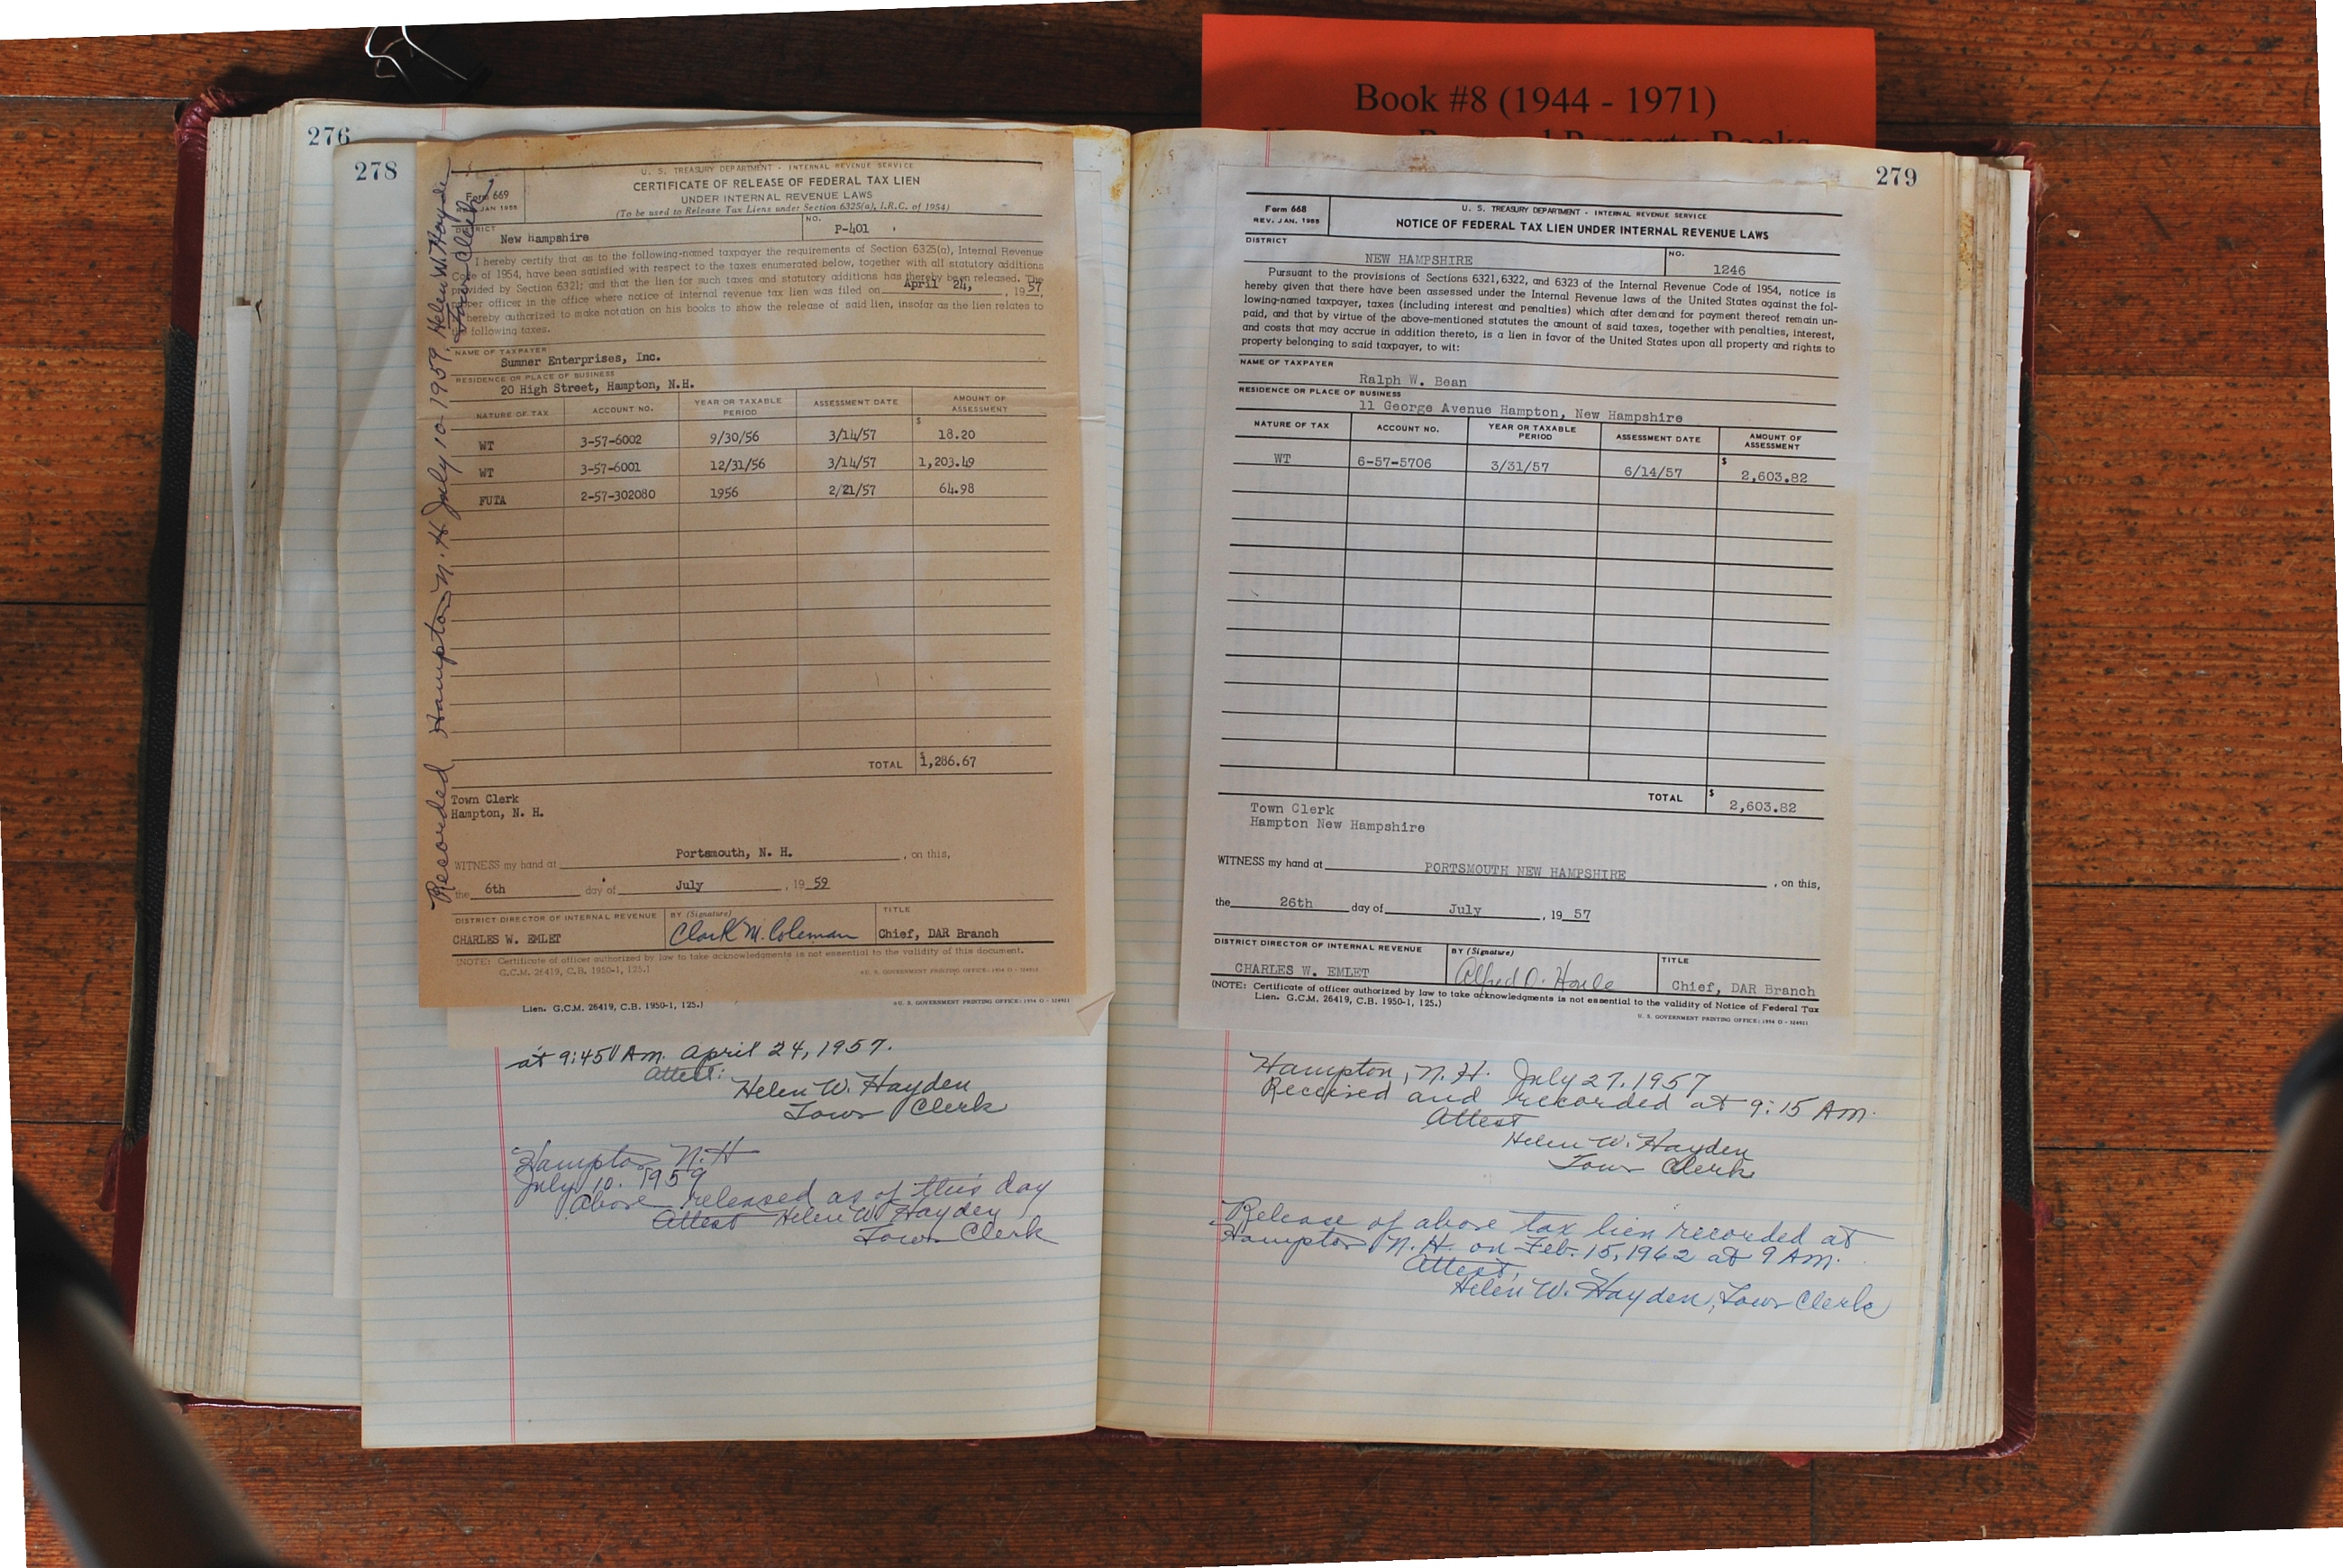 Book #8 (1944 - 1971)
276
278
U. S. TREASURY DEPARTMENT - INTERNAL REVENUE SERVICE
CERTIFICATE OF RELEASE OF FEDERAL TAX LIEN
UNDER INTERNAL REVENUE LAWS
(To be used to Release Tax Liens under Section 6325(a), I.R.C. of 1954)
Form 669
JAN 1955
DISTRICT
New Hampshire
NO.
P-401
I hereby certify that as to the following-named taxpayer the requirements of Section 6325(a), Internal Revenue
Code of 1954, have been satisfied with respect to the taxes enumerated below, together with all statutory additions
provided by Section 6321; and that the lien for such taxes and statutory additions has thereby been released. The
proper officer in the office where notice of internal revenue tax lien was filed on April 24, , 19 57,
hereby authorized to make notation on his books to show the release of said lien, insofar as the lien relates to
following taxes.
NAME OF TAXPAYER
Sumner Enterprises, Inc.
RESIDENCE OR PLACE OF BUSINESS
20 High Street, Hampton, N.H.
NATURE OF TAX ACCOUNT NO. YEAR OR TAXABLE PERIOD ASSESSMENT DATE AMOUNT OF ASSESSMENT
WT 3-57-6002 9/30/56 3/14/57 $ 18.20
WT 3-57-6001 12/31/56 3/14/57 1,203.49
FUTA 2-57-302080 1956 2/21/57 64.98
TOTAL $1,286.67
Town Clerk
Hampton, N. H.
WITNESS my hand at Portsmouth, N. H. , on this,
the 6th day of July , 19 59
DISTRICT DIRECTOR OF INTERNAL REVENUE
CHARLES W. EMLET
BY (Signature)
Clark M. Coleman
TITLE
Chief, DAR Branch
(NOTE: Certificate of officer authorized by law to take acknowledgments is not essential to the validity of this document.
G.C.M. 26419, C.B. 1950-1, 125.)
Recorded Hampton N. H. July 10 - 1959. Helen W. Hayden
Town Clerk
Lien. G.C.M. 26419, C.B. 1950-1, 125.)
U. S. GOVERNMENT PRINTING OFFICE: 1954 O - 324921
at 9:45 AM. April 24, 1957.
Attest:
Helen W. Hayden
Town Clerk
Hampton N. H
July 10. 1959
Above released as of this day
Attest Helen W. Hayden
Town Clerk
279
Form 668
REV. JAN. 1955
U. S. TREASURY DEPARTMENT - INTERNAL REVENUE SERVICE
NOTICE OF FEDERAL TAX LIEN UNDER INTERNAL REVENUE LAWS
DISTRICT
NEW HAMPSHIRE
NO.
1246
Pursuant to the provisions of Sections 6321, 6322, and 6323 of the Internal Revenue Code of 1954, notice is
hereby given that there have been assessed under the Internal Revenue laws of the United States against the fol-
lowing-named taxpayer, taxes (including interest and penalties) which after demand for payment thereof remain un-
paid, and that by virtue of the above-mentioned statutes the amount of said taxes, together with penalties, interest,
and costs that may accrue in addition thereto, is a lien in favor of the United States upon all property and rights to
property belonging to said taxpayer, to wit:
NAME OF TAXPAYER
Ralph W. Bean
RESIDENCE OR PLACE OF BUSINESS
11 George Avenue Hampton, New Hampshire
NATURE OF TAX ACCOUNT NO. YEAR OR TAXABLE PERIOD ASSESSMENT DATE AMOUNT OF ASSESSMENT
WT 6-57-5706 3/31/57 6/14/57 $ 2,603.82
TOTAL $ 2,603.82
Town Clerk
Hampton New Hampshire
WITNESS my hand at PORTSMOUTH NEW HAMPSHIRE , on this,
the 26th day of July , 19 57
DISTRICT DIRECTOR OF INTERNAL REVENUE
CHARLES W. EMLET
BY (Signature)
Alfred O. Houle
TITLE
Chief, DAR Branch
(NOTE: Certificate of officer authorized by law to take acknowledgments is not essential to the validity of Notice of Federal Tax
Lien. G.C.M. 26419, C.B. 1950-1, 125.)
U. S. GOVERNMENT PRINTING OFFICE: 1954 O - 324921
Hampton, N. H. July 27, 1957
Received and recorded at 9:15 AM.
Attest
Helen W. Hayden
Town Clerk
Release of above tax lien recorded at
Hampton, N. H. on Feb. 15, 1962 at 9 AM.
Attest,
Helen W. Hayden, Town Clerk